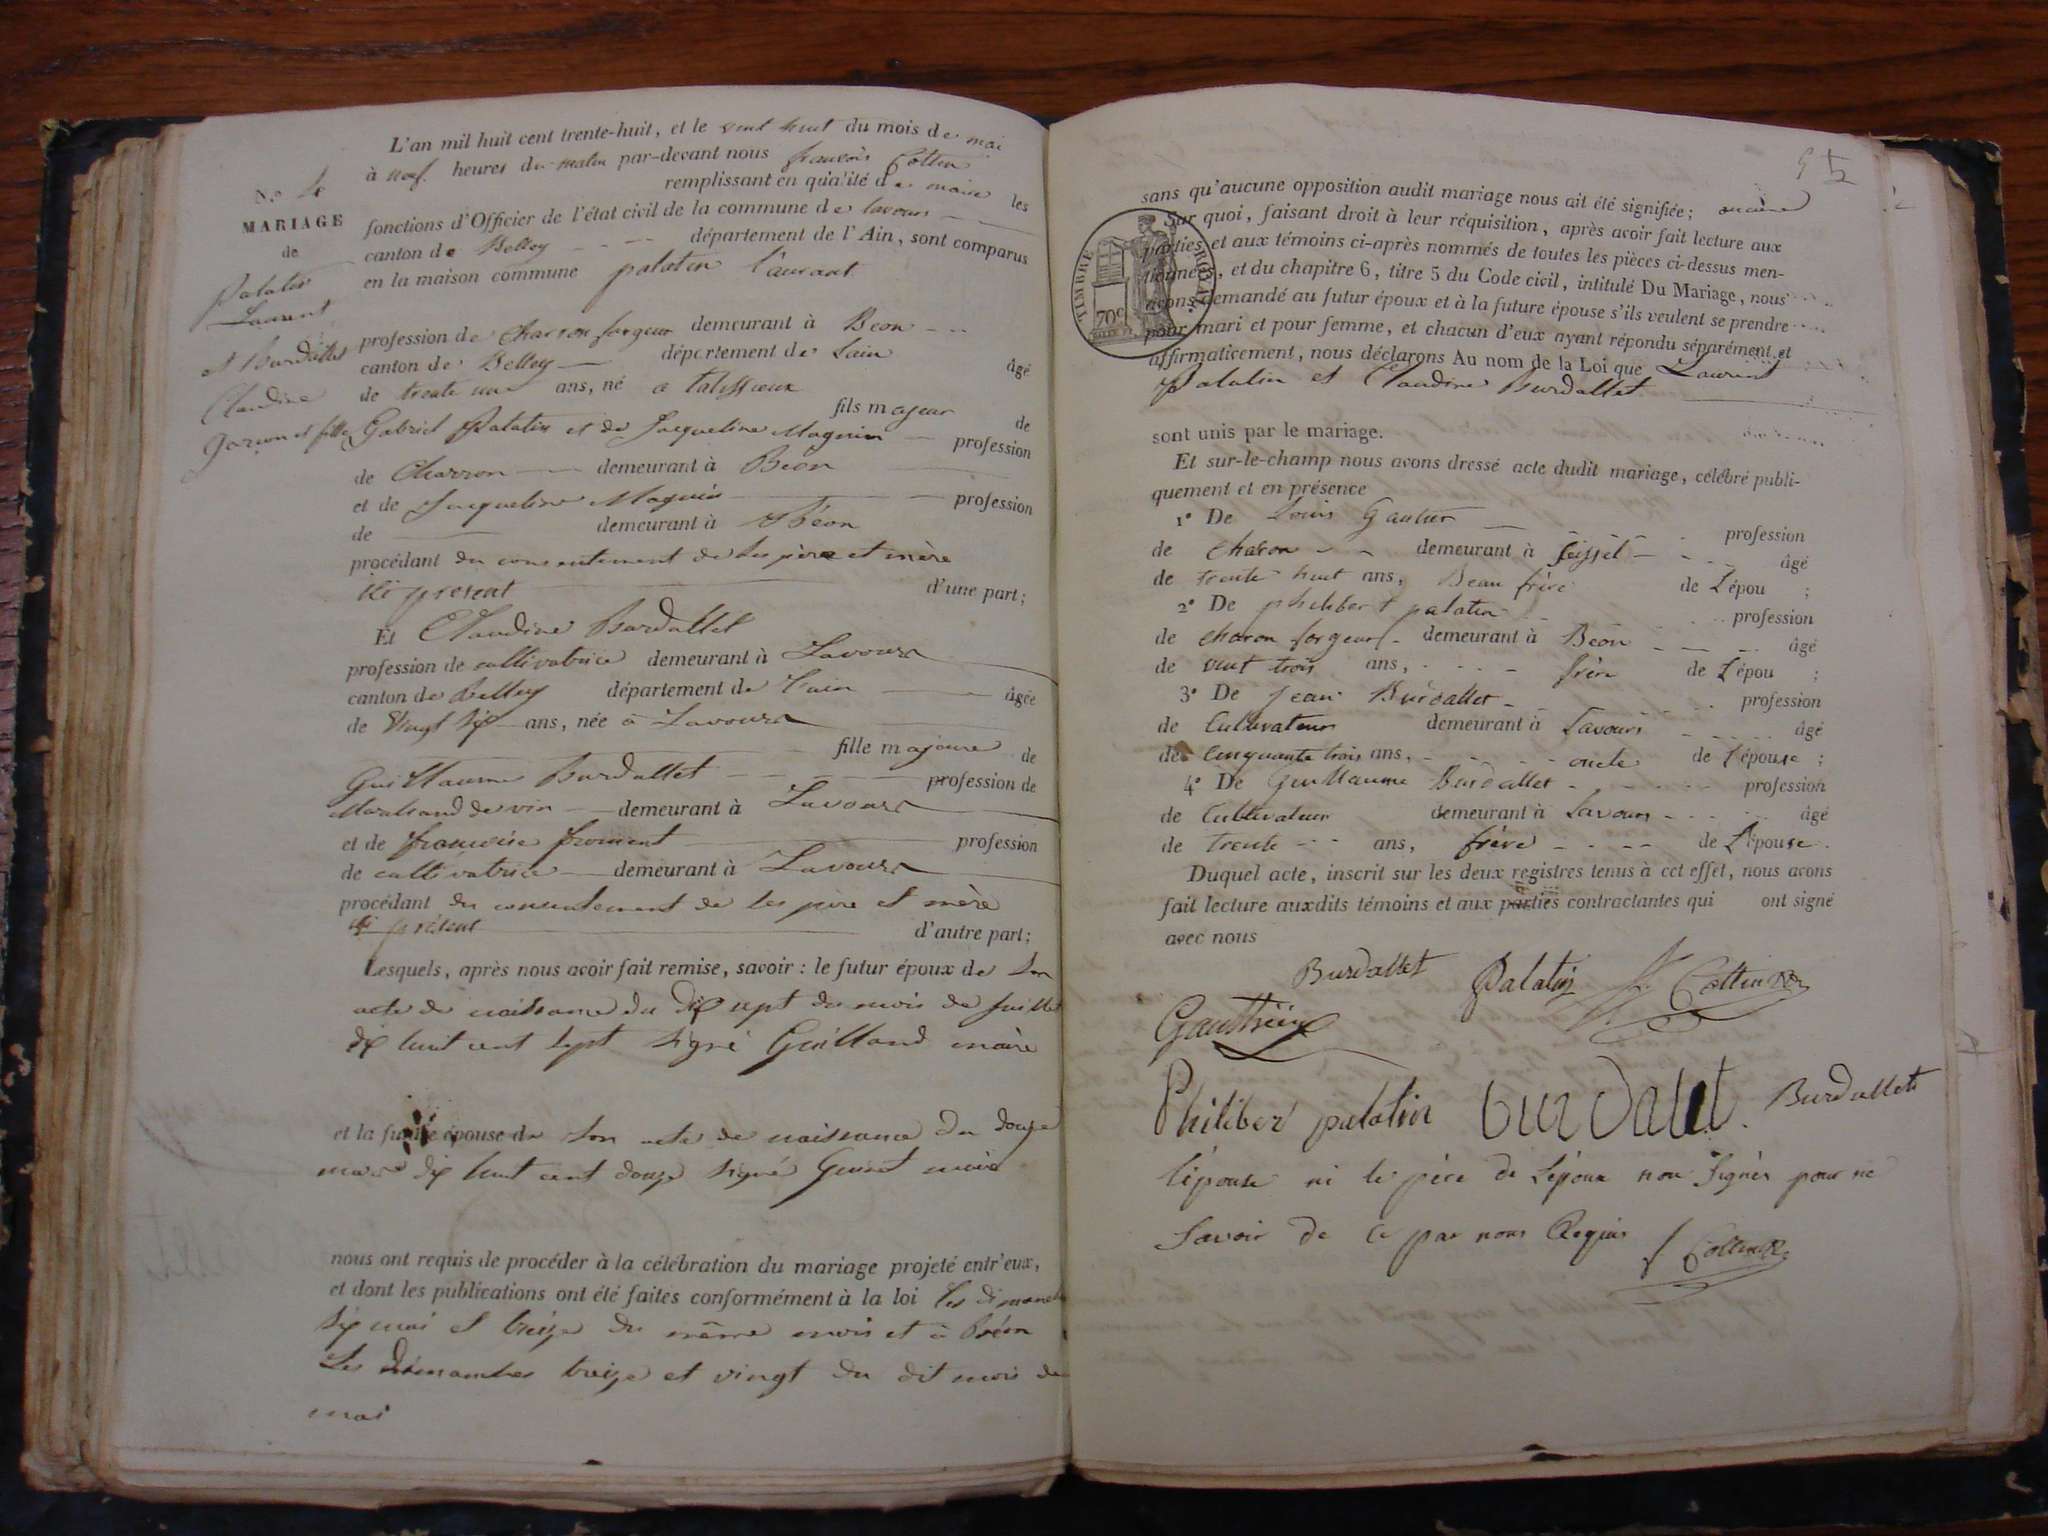 L'an mil huit cent trente-huit, et le vent huit du mois de mai
à neuf heures du matin par-devant nous françois Cottin
remplissant en qualité de maire les
N.° 4
MARIAGE
de
Palatin
Laurent
et Burdallet
Claudine
garçon et fille
fonctions d'Officier de l'état civil de la commune de lavours
canton de Belley département de l'Ain, sont comparus
en la maison commune palatin laurant
profession de charron forgeur demeurant à Beon
canton de Belley département de Lain âgé
de trente un ans, né a talissieux
fils majeur de
Gabriel Palatin et de Jacqueline Magnin profession
de Charron demeurant à Béon
et de Jacqueline Magnin profession
de demeurant à Béon
procédant du consentement de ses père et mère
ici présent d'une part;
Et Claudine Burdallet
profession de cultivatrice demeurant à Lavours
canton de Belley département de l'ain âgée
de Vingt six ans, née à Lavours
fille majeure de
Guillaume Burdallet profession de
Marchand de vin demeurant à Lavours
et de françoise froment profession
de cultivatrice demeurant à Lavours
procédant du consentement de ses père et mère
ici présent d'autre part;
Lesquels, après nous avoir fait remise, savoir : le futur époux de son
acte de naissance du dix sept du mois de juillet
dix huit cent sept signé Guilland maire
et la future épouse de son acte de naissance du douze
mars dix huit cent douze signé maire
nous ont requis de procéder à la célébration du mariage projeté entr'eux,
et dont les publications ont été faites conformément à la loi les dimanche
six mai et treize du même mois et à Béon
Les dimanches treize et vingt du dit mois de
mai
5
sans qu'aucune opposition audit mariage nous ait été signifiée; aucune
TIMBRE ROYAL.
70c
Sur quoi, faisant droit à leur réquisition, après avoir fait lecture aux
parties et aux témoins ci-après nommés de toutes les pièces ci-dessus men-
tionnées, et du chapitre 6, titre 5 du Code civil, intitulé Du Mariage, nous
avons demandé au futur époux et à la future épouse s'ils veulent se prendre
pour mari et pour femme, et chacun d'eux ayant répondu séparément et
affirmativement, nous déclarons Au nom de la Loi que Laurent
Palatin et Claudine Burdallet
sont unis par le mariage.
Et sur-le-champ nous avons dressé acte dudit mariage, célébré publi-
quement et en présence
1° De Louis Gautier profession
de charon demeurant à Seissel âgé
de trente huit ans, Beau frère de L'épou ;
2° De philibert palatin profession
de charon forgeur demeurant à Béon âgé
de vent trois ans, frère de L'épou ;
3° De Jean Burdallet profession
de Cultivateur demeurant à Lavours âgé
de Cinquante trois ans, oncle de l'épouse ;
4° De Guillaume Burdallet profession
de Cultivateur demeurant à Lavours âgé
de trente ans, frère de L'épouse.
Duquel acte, inscrit sur les deux registres tenus à cet effet, nous avons
fait lecture auxdits témoins et aux parties contractantes qui ont signé
avec nous
Burdallet Palatin f. Cottin
Gauthier
Philiber palatin burdalet Burdallet
l'épouse ni le père de L'époux non Signés pour ne
Savoir de ce par nous Requis f Cottin